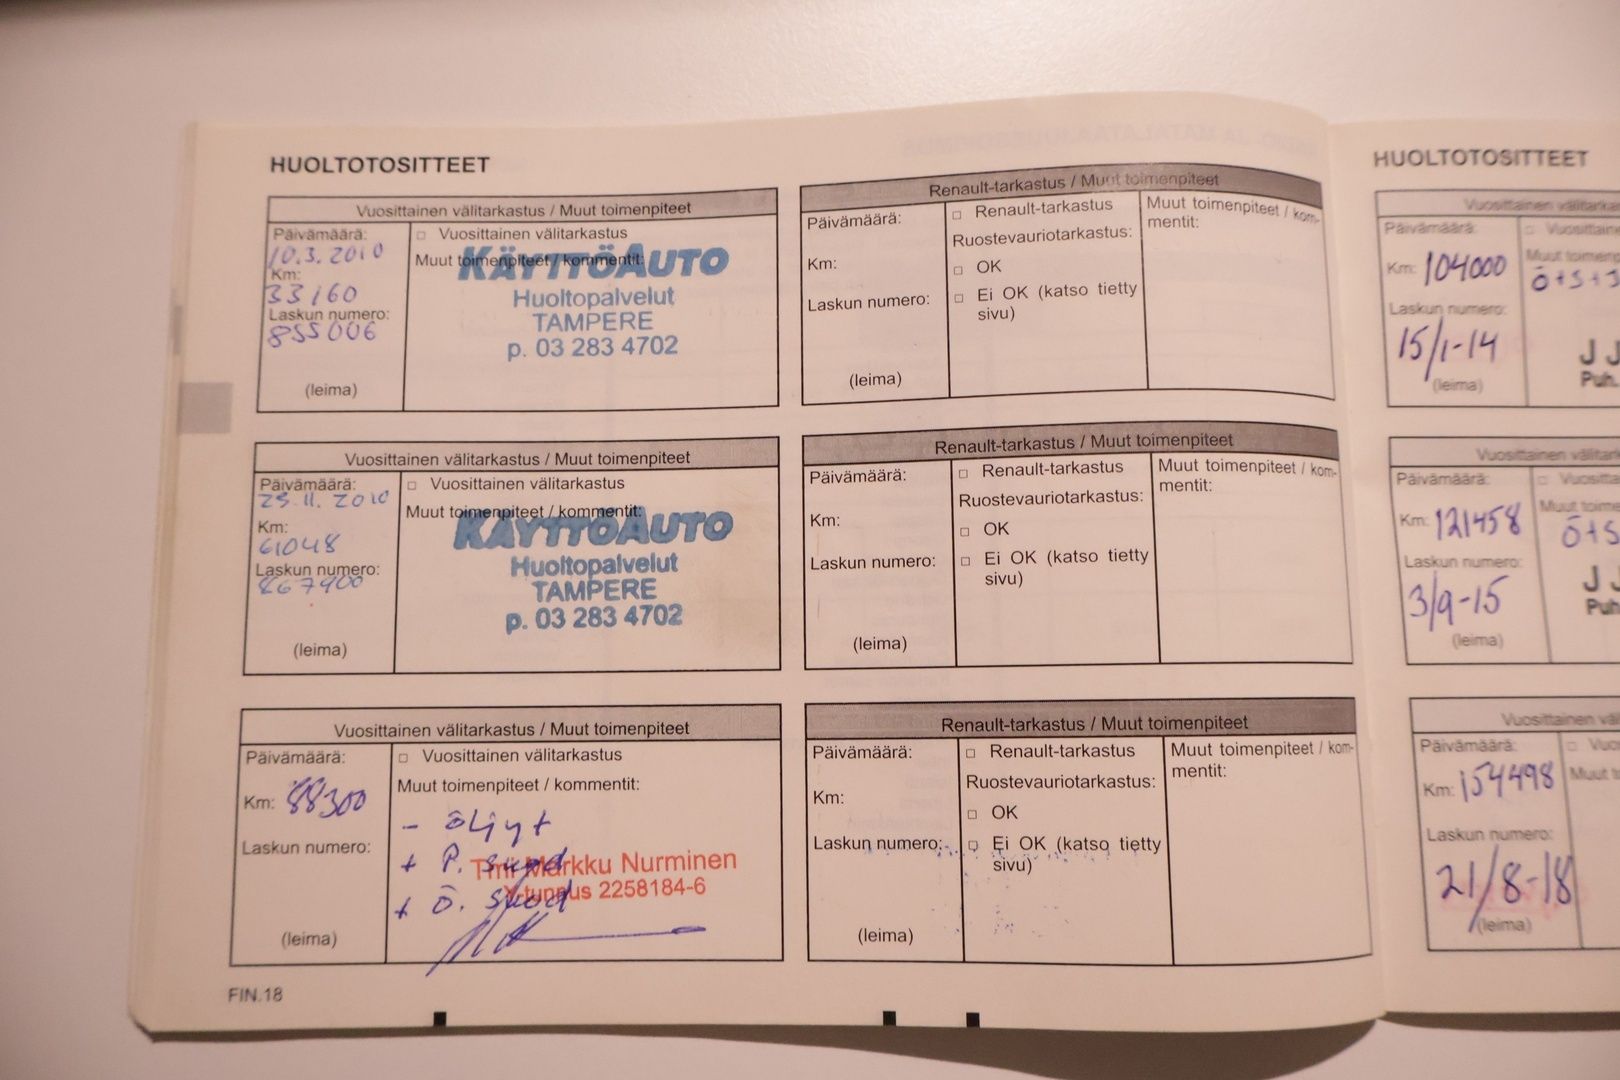 HUOLTOTOSITTEET
Vuosittainen välitarkastus / Muut toimenpiteet
Päivämäärä:
10.3. 2010
Km:
33160
Laskun numero:
855006
(leima)
□ Vuosittainen välitarkastus
Muut toimenpiteet / kommentit:
KÄYTTÖAUTO
Huoltopalvelut
TAMPERE
p. 03 283 4702
Renault-tarkastus / Muut toimenpiteet
Päivämäärä:
Km:
Laskun numero:
(leima)
□ Renault-tarkastus
Ruostevauriotarkastus:
□ OK
□ Ei OK (katso tietty
sivu)
Muut toimenpiteet / kom-
mentit:
Vuosittainen välitarkastus / Muut toimenpiteet
Päivämäärä:
11. 2010
Km:
61048
Laskun numero:
867900
(leima)
□ Vuosittainen välitarkastus
Muut toimenpiteet / kommentit:
KÄYTTÖAUTO
Huoltopalvelut
TAMPERE
p. 03 283 4702
Renault-tarkastus / Muut toimenpiteet
Päivämäärä:
Km:
Laskun numero:
(leima)
□ Renault-tarkastus
Ruostevauriotarkastus:
□ OK
□ Ei OK (katso tietty
sivu)
Muut toimenpiteet / kom-
mentit:
Vuosittainen välitarkastus / Muut toimenpiteet
Päivämäärä:
Km: 88300
Laskun numero:
(leima)
□ Vuosittainen välitarkastus
Muut toimenpiteet / kommentit:
- öljyt
+ P. suod
+ Ö. suod
Tmi Markku Nurminen
Y-tunnus 2258184-6
Renault-tarkastus / Muut toimenpiteet
Päivämäärä:
Km:
Laskun numero:
(leima)
□ Renault-tarkastus
Ruostevauriotarkastus:
□ OK
□ Ei OK (katso tietty
sivu)
Muut toimenpiteet / kom-
mentit:
FIN.18
HUOLTOTOSITTEET
Vuosittainen
Päivämäärä:
Km: 104000
Laskun numero:
15/1-14
(leima)
Muut
Ö+S+S
J J
Puh.
Vuosittainen
Päivämäärä:
Km: 121458
Laskun numero:
3/9-15
(leima)
Muut
Ö+S
J J
Puh.
Vuosittainen
Päivämäärä:
Km: 154498
Laskun numero:
21/8-18
(leima)
Muut